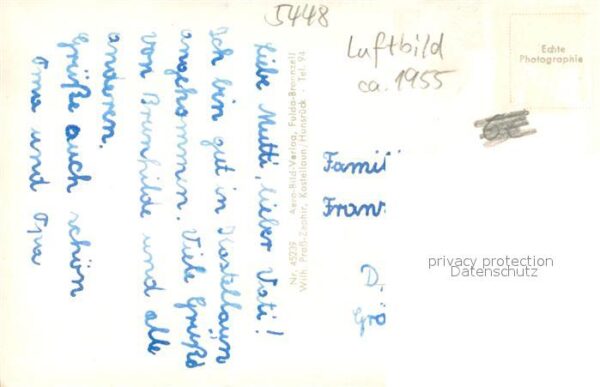 5448
Luftbild
ca. 1955
Echte
Photographie
Liebe Mutti, lieber Vati!
Ich bin gut in Kastellaun
angekommen. Viele Grüße
von Brunhilde und alle
anderen.
Grüße auch schön
Oma und Opa
Nr. 45239 Aero-Bild-Verlag, Fulda-Bronnzell
Wilh. Praß-Zephir, Kastellaun/Hunsrück · Tel. 94
Famil
Fran
privacy protection
Datenschutz